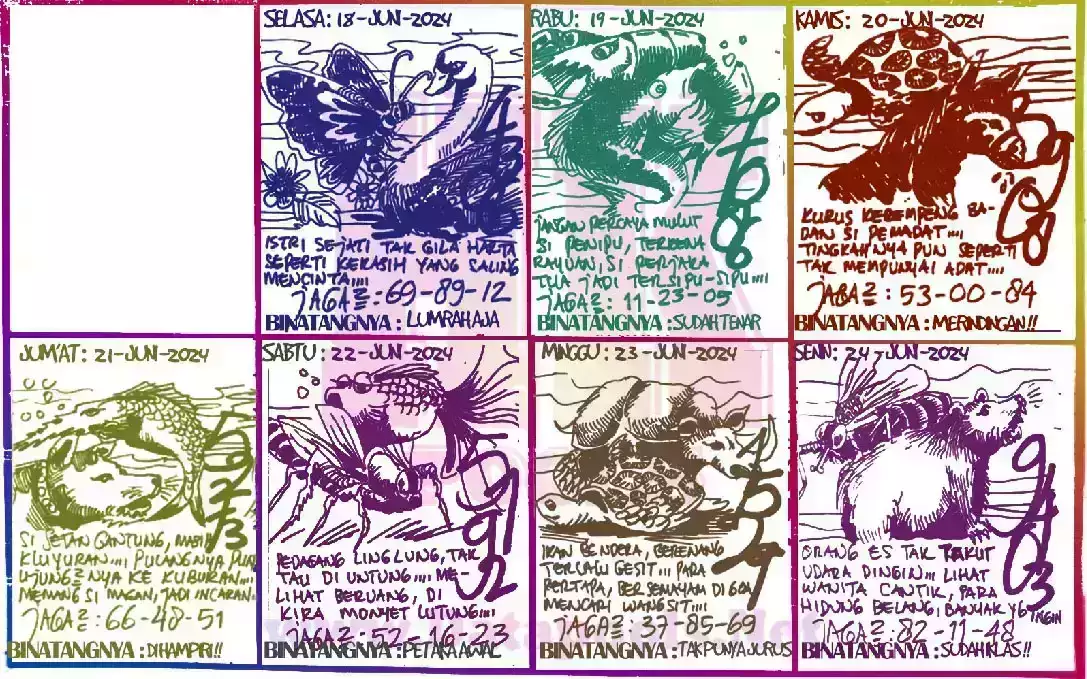 SELASA: 18-JUN-2024
ISTRI SEJATI TAK GILA HARTA
SEPERTI KEKASIH YANG SALING
MENCINTA....
JAGA2: 69-89-12
BINATANGNYA: LUMRAH AJA
RABU: 19-JUN-2024
JANGAN PERCAYA MULUT
SI PENIPU, TERKENA
RAYUAN, SI PERJAKA
TUA JADI TERSIPU-SIPU....
JAGA2: 11-23-05
BINATANGNYA: SUDAH TENAR
KAMIS: 20-JUN-2024
KURUS KEREMPENG BA-
DAN SI PEMADAT....
TINGKAHNYA PUN SEPERTI
TAK MEMPUNYAI ADAT....
JAGA2: 53-00-84
BINATANGNYA: MERINDINGAN!!
JUM'AT: 21-JUN-2024
SI SETAN GANTUNG, MASIH
KLUYURAN.... PULANGNYA PUN
UJUNG2NYA KE KUBURAN....
MEMANG SI MACAN, JADI INCARAN..
JAGA2: 66-48-51
BINATANGNYA: DIHAMPIRI!!
SABTU: 22-JUN-2024
PEDAGANG LINGLUNG, TAK
TAU DI UNTUNG.... ME-
LIHAT BERUANG, DI
KIRA MONYET LUTUNG....
JAGA2: 52-16-23
BINATANGNYA: PETAKA AWAL
MINGGU: 23-JUN-2024
IKAN BENDERA, BERENANG
TERLALU GESIT... PARA
PERTAPA, BERSEMAYAM DI GOA
MENCARI WANGSIT....
JAGA2: 37-85-69
BINATANGNYA: TAK PUNYA JURUS
SENIN: 24-JUN-2024
ORANG ES TAK TAKUT
UDARA DINGIN... LIHAT
WANITA CANTIK, PARA
HIDUNG BELANG, BANYAK YG
INGIN
JAGA2: 82-11-48
BINATANGNYA: SUDAH KLAS!!